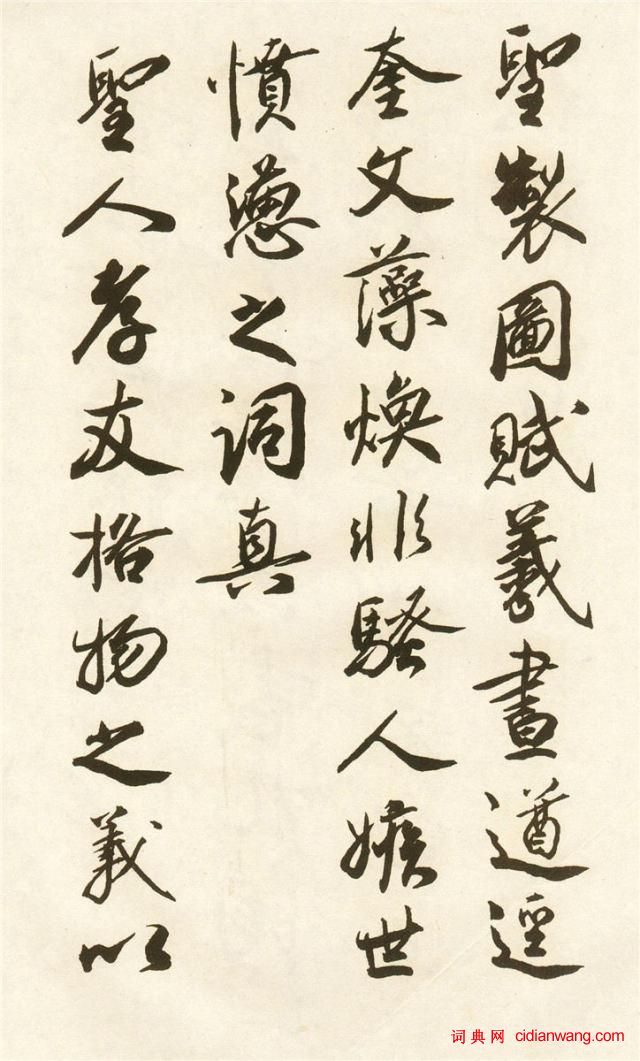 聖製圖賦羲畫遒逕
奎文藻煥非騷人嫉世
憤懣之詞真
聖人孝友格物之義以
词典网 cidianwang.com